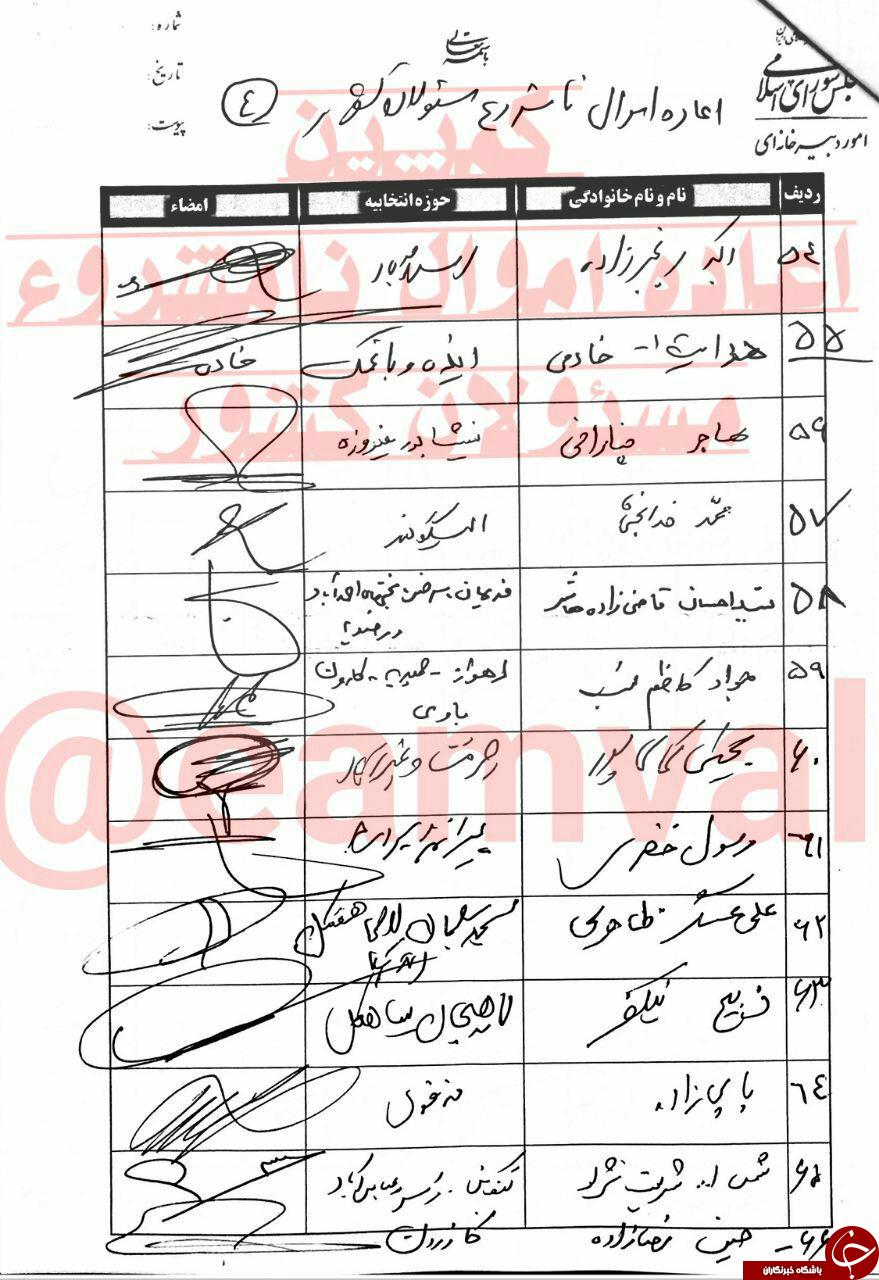 شماره:
تاریخ:
پیوست:
باسمه تعالی
مجلس شورای اسلامی
امور دبیرخانه‌ای
اعاده اموال نامشروع مسئولان کشور
٤
کمپین
اعاده اموال نامشروع
مسئولان کشور
@eamval
ردیف نام و نام خانوادگی حوزه انتخابیه امضاء
۵٤ اکبر رنجبرزاده اسدآباد
۵۵ هدایت ا... خادمی ایذه و باغملک خادمی
۵۶ هاجر چنارانی نیشابور فیروزه
۵۷ محمد خدابخشی الیگودرز
۵۸ سید احسان قاضی زاده هاشمی فریمان، سرخس
۵۹ جواد کاظم نسب اهواز - حمیدیه - کارون
باوی
۶۰ یحیی کمالی پور جیرفت و عنبرآباد
۶۱ رسول خضری پیرانشهر
۶۲ علی عسگر ظاهری مسجدسلیمان لالی هفتگل
اندیکا
۶۳ ذبیح نیکفر لاهیجان سیاهکل
۶٤ پاپی زاده دزفول
۶۵ شمس ا... شریعت نژاد تنکابن رامسر عباس آباد
۶۶ حسین رضازاده کازرون
باشگاه خبرنگاران